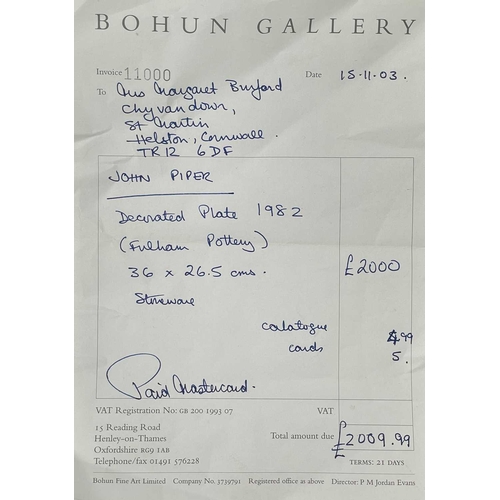 BOHUN GALLERY
Invoice 11000 Date 15.11.03.
To Mrs Margaret Burford
Chyvandown,
St Martin
Helston, Cornwall.
TR12 6DF
JOHN PIPER
Decorated Plate 1982
(Fulham Pottery)
36 x 26.5 cms. £2000
Stoneware
catalogue 4.99
cards 5.
Paid Mastercard.
VAT Registration No: GB 200 1993 07 VAT
15 Reading Road
Henley-on-Thames
Oxfordshire RG9 1AB
Telephone/fax 01491 576228
Total amount due £2009.99
TERMS: 21 DAYS
Bohun Fine Art Limited Company No. 3739791 Registered office as above Director: P M Jordan Evans